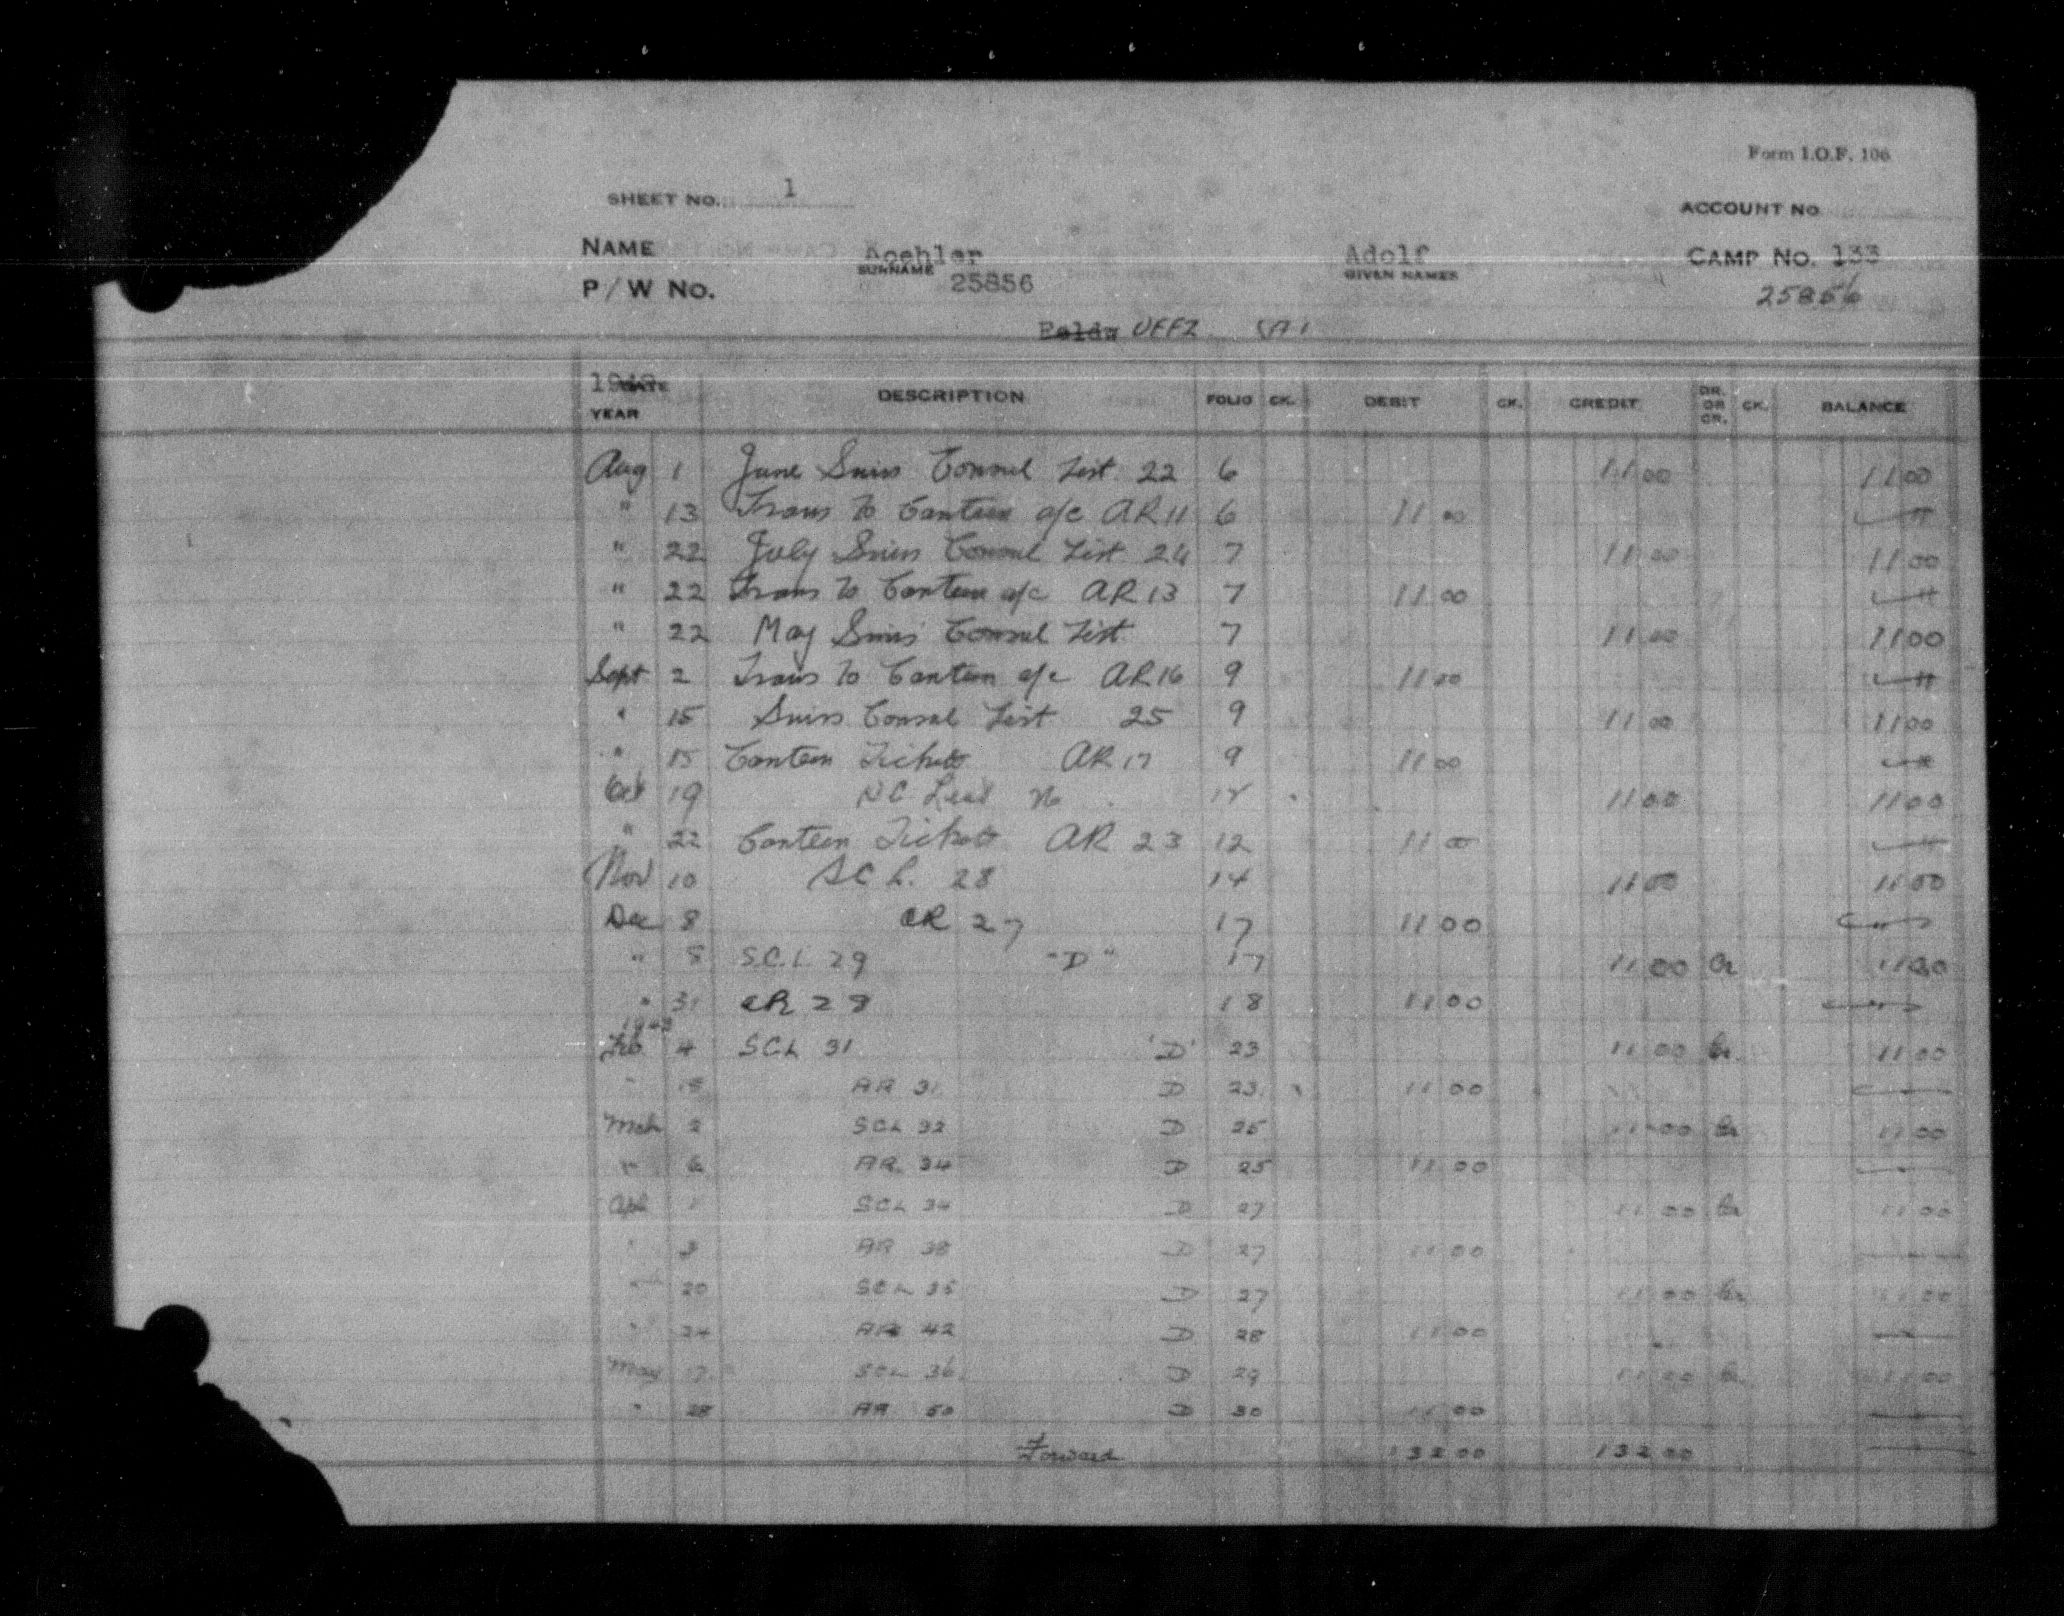 Form I.O.F. 106
SHEET NO. 1
ACCOUNT NO
NAME Koehler Adolf CAMP NO. 133
SURNAME GIVEN NAMES
P/W NO. 25856 25856
UFFZ
DATE
YEAR DESCRIPTION FOLIO CK. DEBIT CK. CREDIT DR. OR CR. CK. BALANCE
Aug 1 June Swiss Consul List 22 6 11 00 11 00
" 13 Trans to Canteen a/c AR 11 6 11 00
" 22 July Swiss Consul List 24 7 11 00 11 00
" 22 Trans to Canteen a/c AR 13 7 11 00
" 22 May Swiss Consul List 7 11 00 11 00
Sept 2 Trans to Canteen a/c AR 16 9 11 00
" 15 Swiss Consul List 25 9 11 00 11 00
" 15 Canteen Tickets AR 17 9 11 00
Oct 19 26 11 00 11 00
" 22 Canteen Tickets AR 23 12 11 00
Nov 10 SCL. 28 14 11 00 11 00
Dec 8 CR 27 17 11 00
" 8 S.C.L 29 "D" 17 11 00 Cr 11 00
" 31 CR 28 18 11 00
1943
Feb 4 SCL 31 'D' 23 11 00 Cr. 11 00
AR 31 D 23 11 00
Mch 2 SCL 32 D 25 11 00 Cr 11 00
" 6 AR 34 D 25 11 00
Apl 1 SCL 34 D 27 11 00 Cr 11 00
" 3 AR 38 D 27 11 00
" 20 SCL 35 D 27 11 00 Cr 11 00
" 24 AR 42 D 28 11 00
May 17 SCL 36 D 29 11 00 Cr 11 00
" 28 AR 50 D 30 11 00
Forward 132 00 132 00